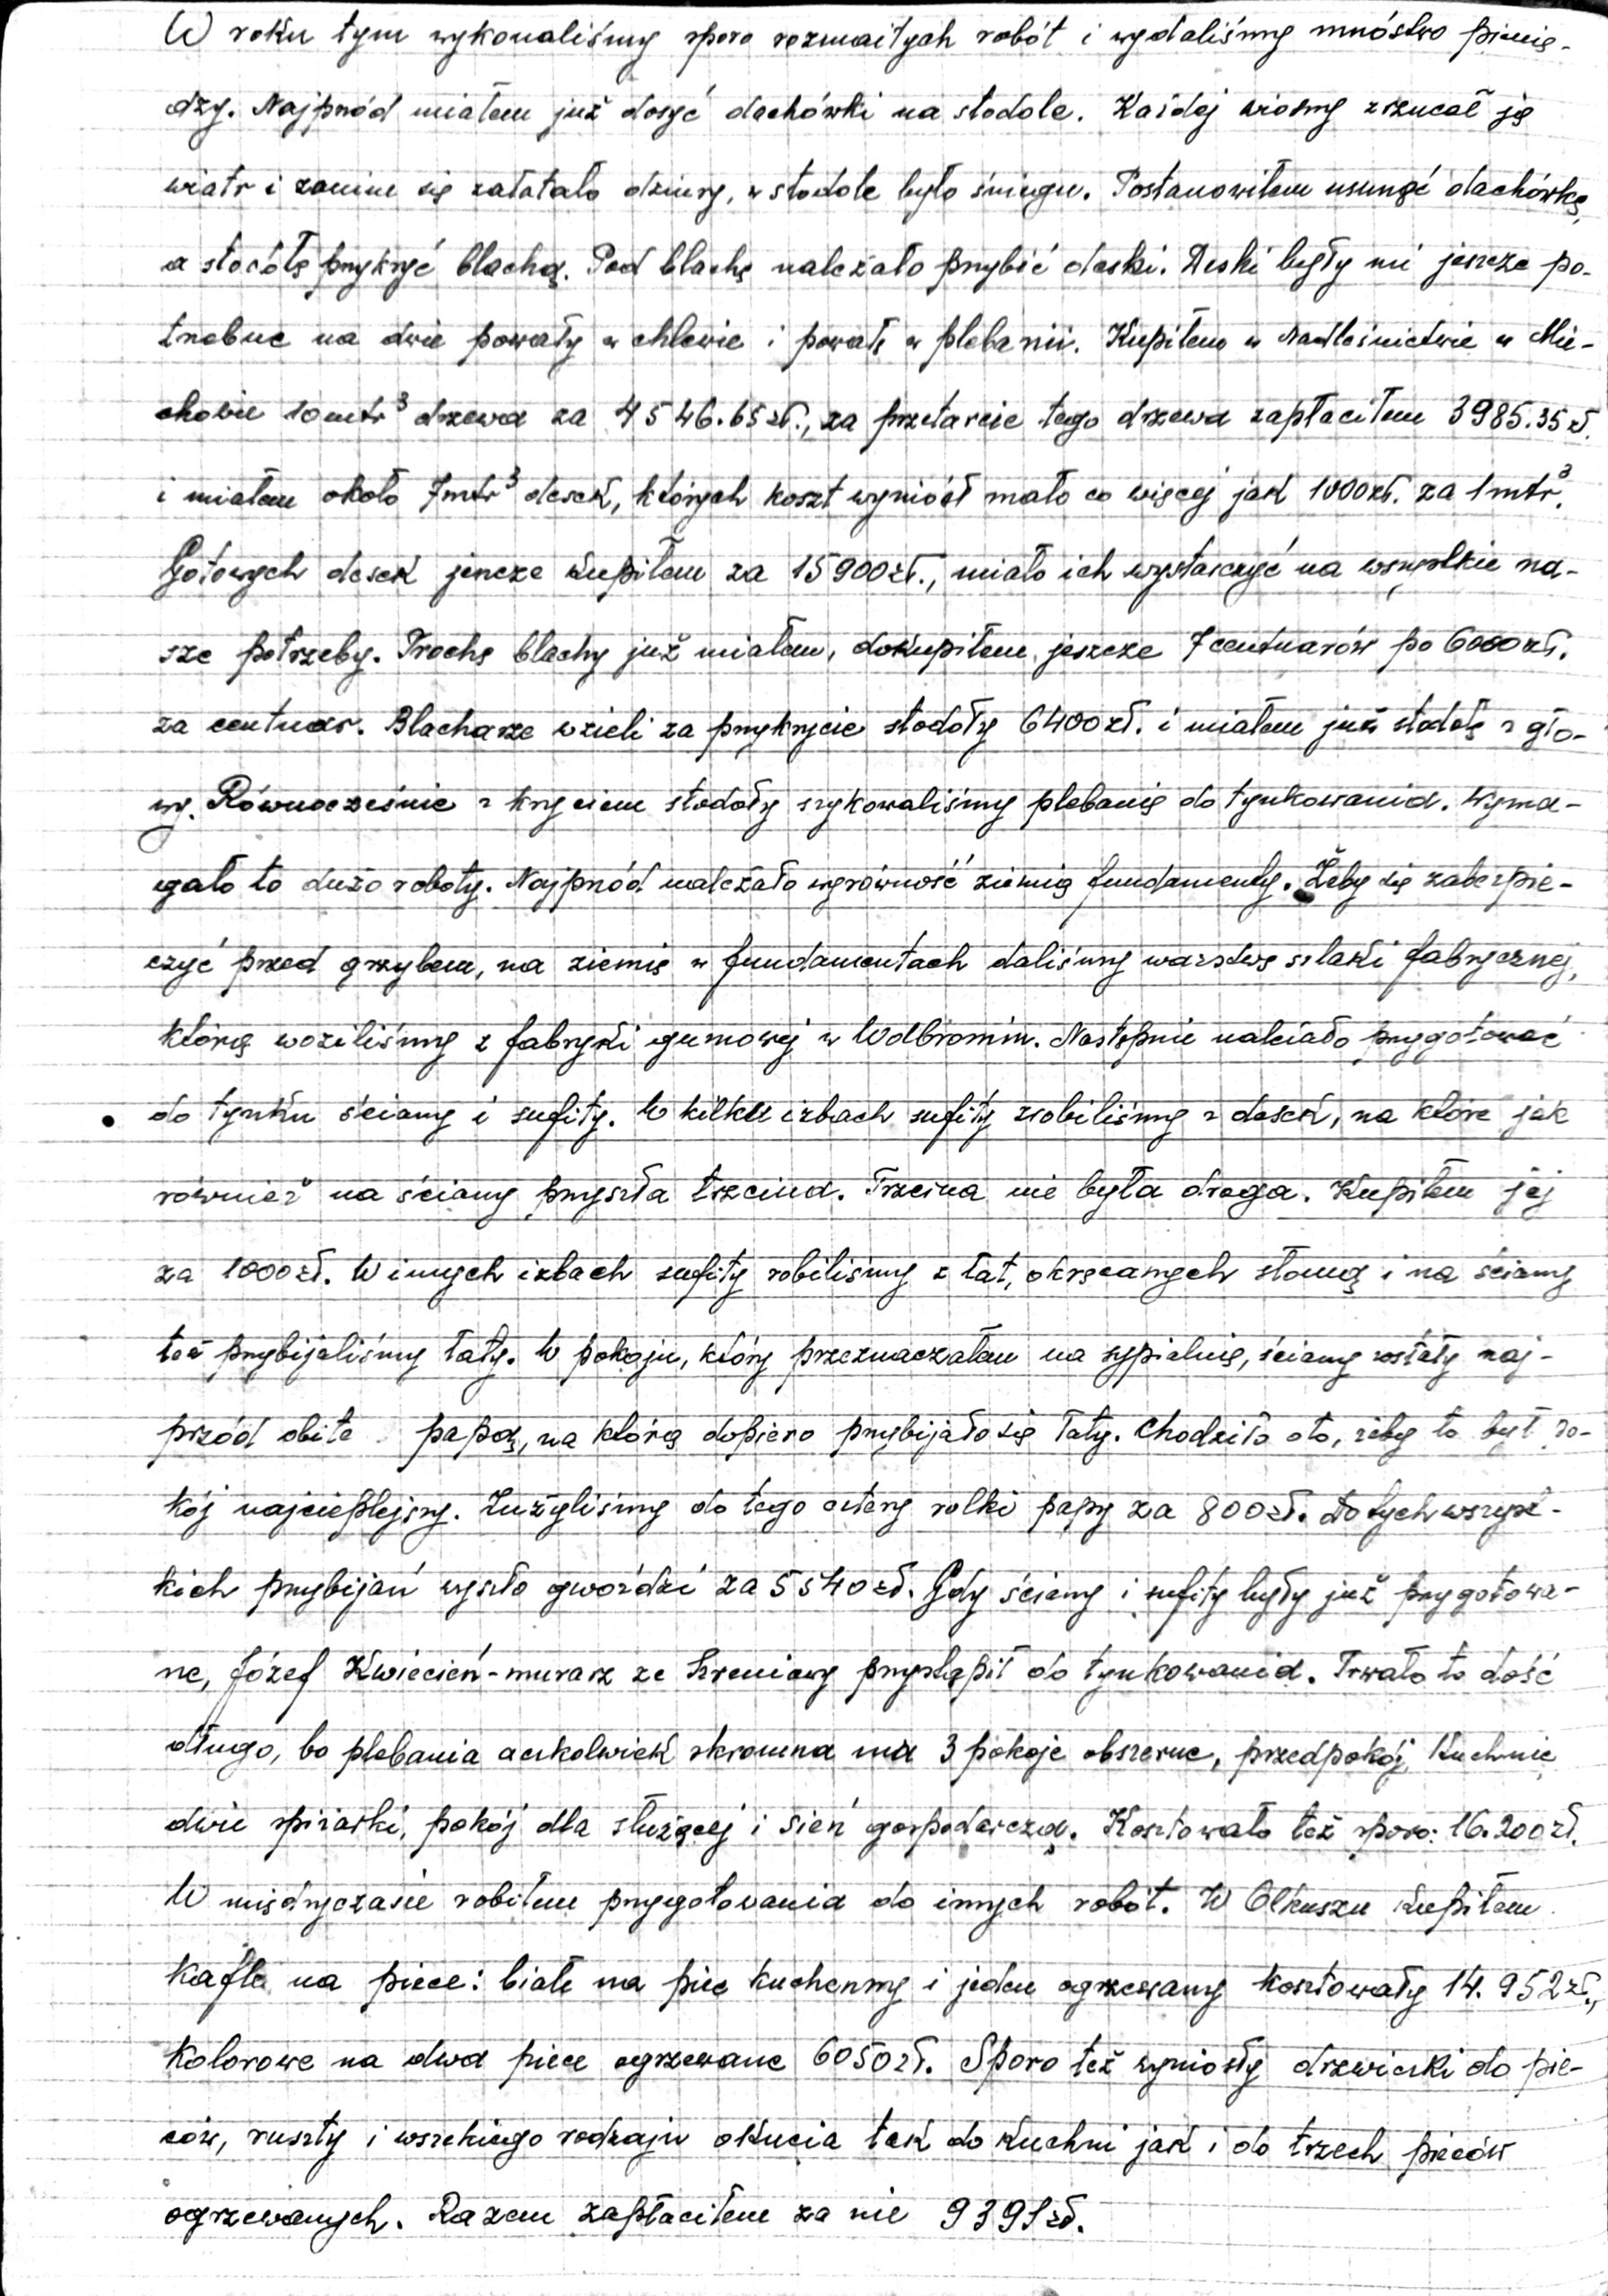 W roku tym wykonaliśmy sporo rozmaitych robót i wydaliśmy mnóstwo pienię-
dzy. Najprzód miałem już dosyć dachówki na stodole. Każdej wiosny zrzucał ją
wiatr i zanim się załatało dziury, w stodole było śniegu. Postanowiłem usunąć dachówkę,
a stodołę przykryć blachą. Pod blachę należało przybić deski. Deski były mi jeszcze po-
trzebne na dwie powały w chlewie i powałę w plebanii. Kupiłem w Nadleśnictwie w Mie-
chowie 10 mtr³ drzewa za 4546.65 zł., za przetarcie tego drzewa zapłaciłem 3985.35 zł.
i miałem około 7 mtr³ desek, których koszt wyniósł mało co więcej jak 1000 zł. za 1 mtr³.
Gotowych desek jeszcze kupiłem za 15900 zł., miało ich wystarczyć na wszystkie na-
sze potrzeby. Trochę blachy już miałem, dokupiłem jeszcze 7 centnarów po 6000 zł.
za centnar. Blacharze wzieli za przykrycie stodoły 6400 zł. i miałem już stodołę z gło-
wy. Równocześnie z kryciem stodoły szykowaliśmy plebanię do tynkowania. Wyma-
gało to dużo roboty. Najprzód należało wyrównać ziemią fundamenty. Żeby się zabezpie-
czyć przed grzybem, na ziemię w fundamentach daliśmy warstwę szlaki fabrycznej,
którą woziliśmy z fabryki gumowej w Wolbromiu. Następnie należało przygotować
do tynku ściany i sufity. W kilku izbach sufity zrobiliśmy z desek, na które jak
również na ściany przyszła trzcina. Trzcina nie była droga. Kupiłem jej
za 1000 zł. W innych izbach sufity robiliśmy z łat, okręcanych słomą i na ściany
też przybijaliśmy łaty. W pokoju, który przeznaczałem na sypialnię, ściany zostały naj-
przód obite papą, na którą dopiero przybijało się łaty. Chodziło oto, żeby to był po-
kój najcieplejszy. Zużyliśmy do tego cztery rolki papy za 800 zł. Do tych wszyst-
kich przybijań wyszło gwoździ za 5540 zł. Gdy ściany i sufity były już przygotowa-
ne, Józef Kwiecień-murarz ze Szreniawy przystąpił do tynkowania. Trwało to dość
długo, bo plebania aczkolwiek skromna ma 3 pokoje obszerne, przedpokój, kuchnię,
dwie spiżarki, pokój dla służącej i sień gospodarczą. Kosztowało też sporo: 16.200 zł.
W międzyczasie robiłem przygotowania do innych robót. W Olkuszu kupiłem
kafle na piece: białe na piec kuchenny i jeden ogrzewany kosztowały 14.952 zł.,
kolorowe na dwa piece ogrzewane 6050 zł. Sporo też wyniosły drzwiczki do pie-
ców, ruszty i wszelkiego rodzaju okucia tak do kuchni jak i do trzech pieców
ogrzewanych. Razem zapłaciłem za nie 9391 zł.